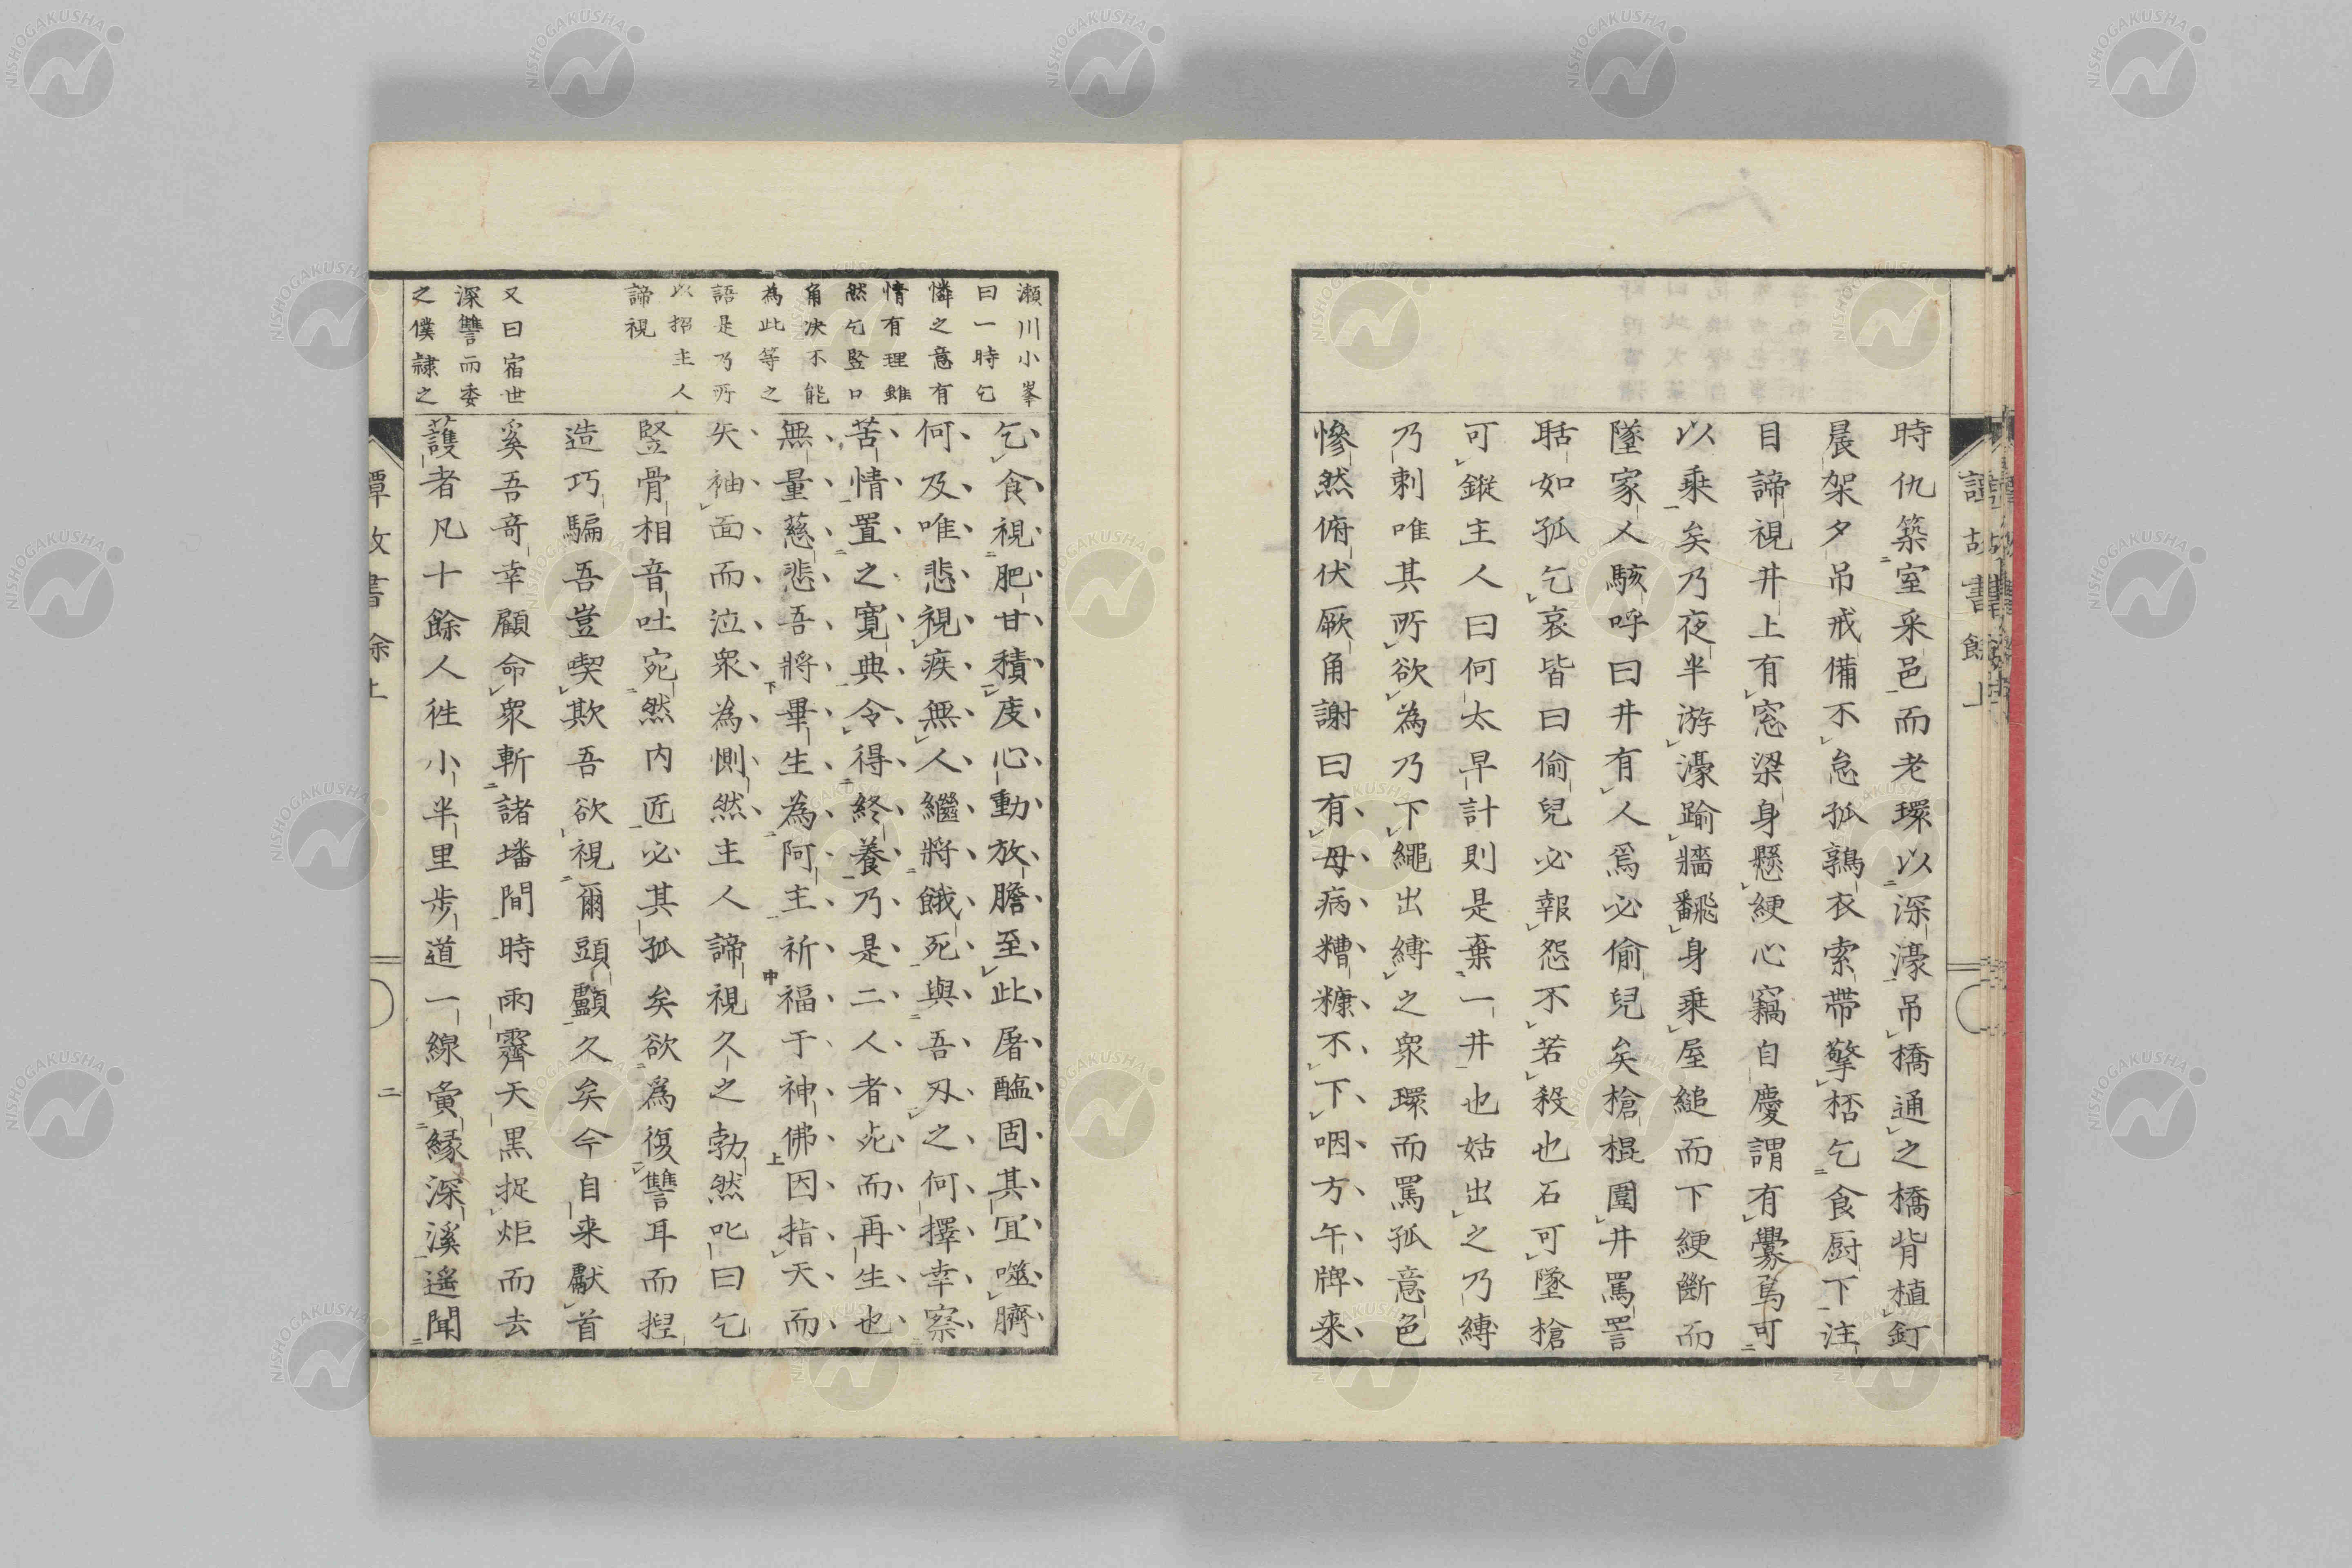 時仇築室采邑而老環以深濠吊橋通之橋背植釘
晨架夕吊戒備不怠孤鶉衣索帶擎桮乞食厨下注
目諦視井上有窓梁身懸綆心竊自慶謂有釁焉可
以乗矣乃夜半游濠踰牆飜身乗屋縋而下綆斷而
墜家人駭呼曰井有人焉必偷兒矣槍棍圍井罵詈
聒如孤乞哀皆曰偷兒必報怨不若殺也石可墜槍
可鏦主人曰何太早計則是棄一井也姑出之乃縛
乃刺唯其所欲為乃下繩出縛之衆環而罵孤意色
慘然俯伏厥角謝曰有母病糟糠不下咽方午牌来
乞食視肥甘積庋心動放膽至此屠醢固其宜噬臍
何及唯悲視疾無人繼將餓死與吾刄之何擇幸察
苦情置之寛典令得終養乃是二人者死而再生也
無量慈悲吾將畢生為阿主祈福于神佛因指天而
矢袖面而泣衆為惻然主人諦視久之勃然叱曰乞
竪骨相音吐宛然内匠必其孤矣欲爲復讐耳而揑
造巧騙吾豈喫欺吾欲視爾頭顱久矣今自来獻首
奚吾竒幸顧命衆斬諸墦間時雨霽天黒捉炬而去
護者凡十餘人徃小半里步道一線夤縁深溪遥聞
瀬川小峯
曰一時乞
憐之意有
情有理雖
然乞竪口
角决不能
為此等之
語是乃所
以招主人
諦視
又曰宿世
深讐而委
之僕隷之
譚故書餘上
二
NISHOGAKUSHA